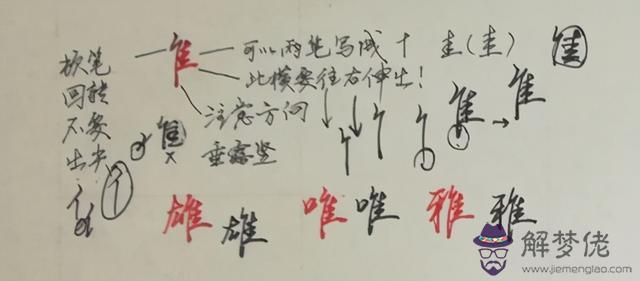 顿笔
回转
不要
出尖
隹
可以两笔写成十 圭(圭) 隹
此横要往右伸出!
注意方向
垂露竖
隹
隹→隹
雄 雄 唯 唯 雅 雅
解梦佬
www.jiemenglao.com